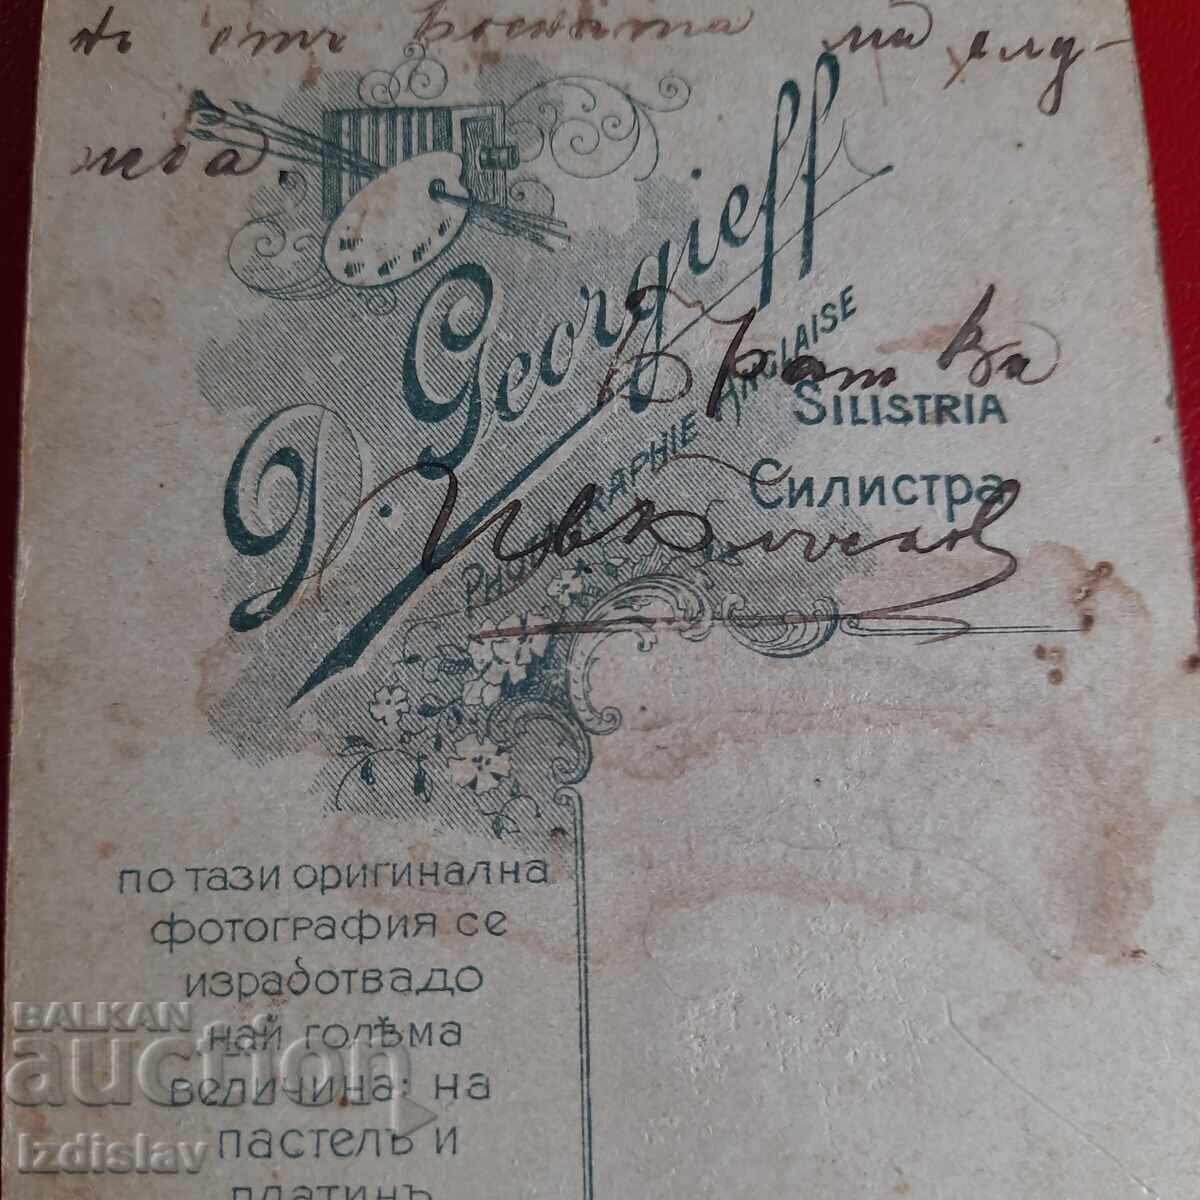 не отъ военната ми слу-
жба.
D. Georgieff
PHOTOGRAPHIE ANGLAISE
SILISTRIA
Силистра
Братъ Ви
ПО ТАЗИ ОРИГИНАЛНА
ФОТОГРАФИЯ СЕ
ИЗРАБОТВАДО
НАЙ ГОЛѢМА
ВЕЛИЧИНА: НА
ПАСТЕЛЪ И
ПЛАТИНЪ
BALKAN
auction
Izdislav